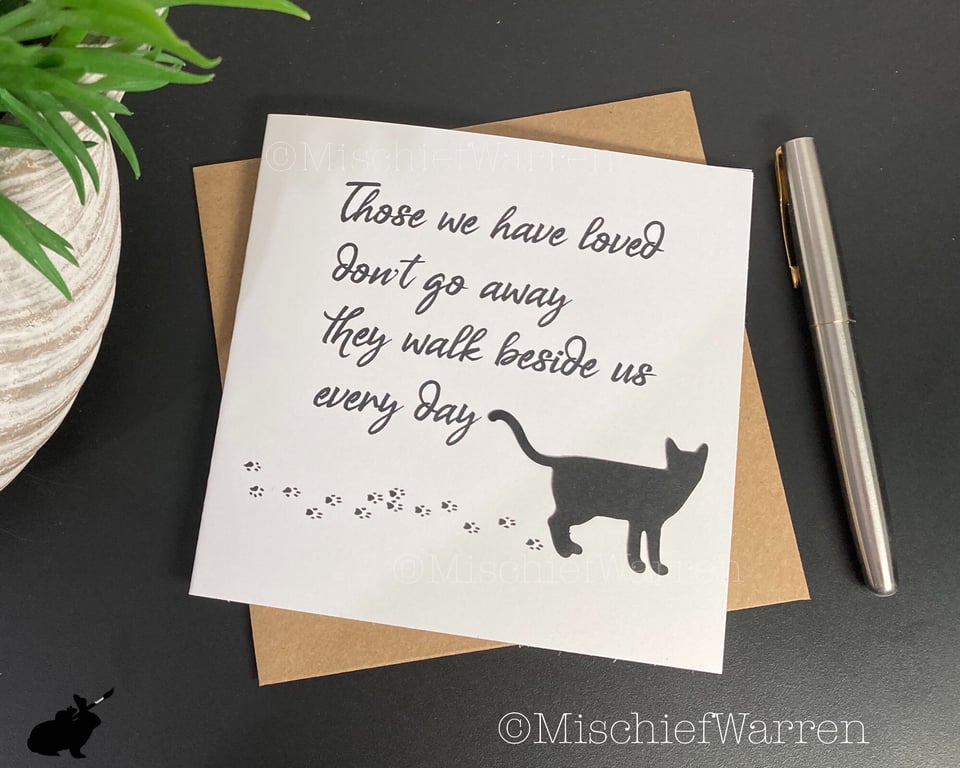 ©MischiefWarren
Those we have loved
don't go away
they walk beside us
every day
©MischiefWarren
©MischiefWarren